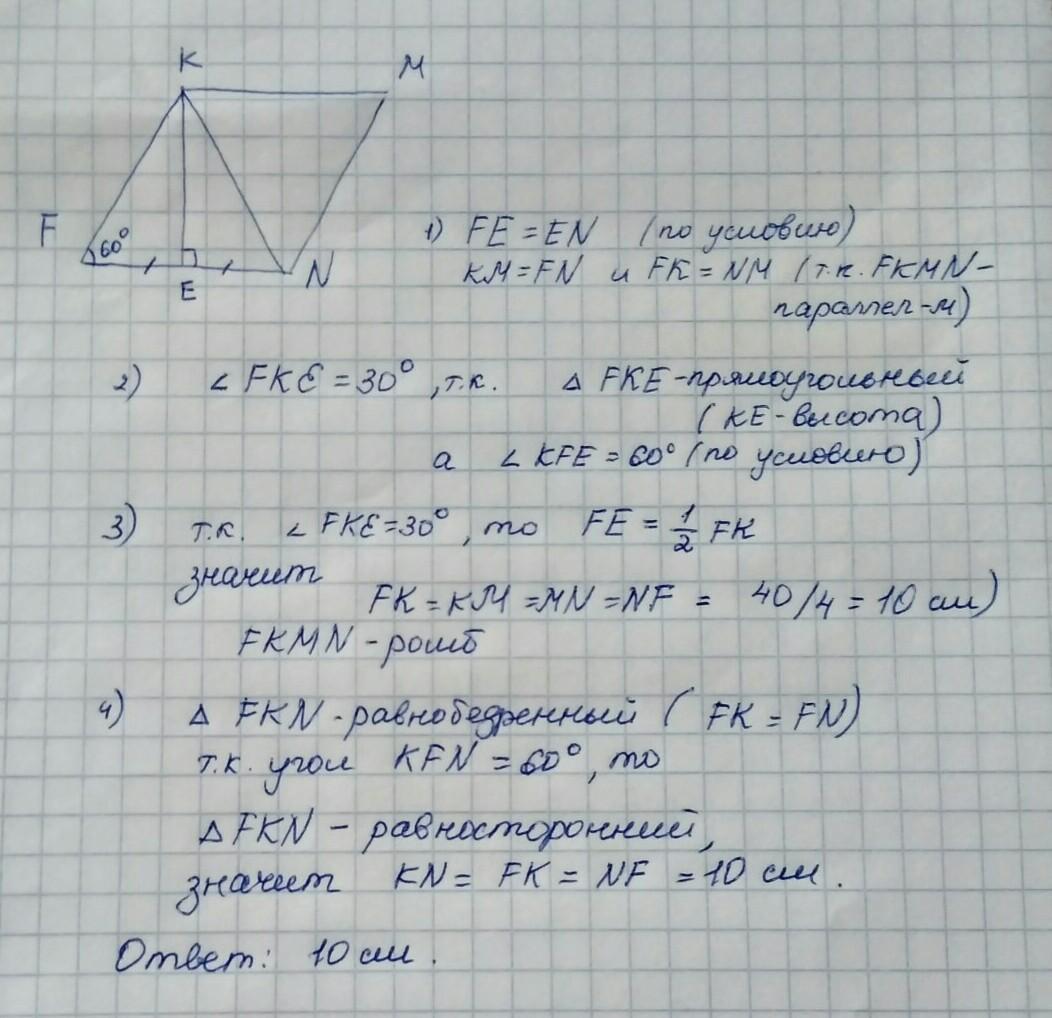 K
M
F
60°
E
N
1) FE = EN (по условию)
KM = FN и FK = NM (т.к. FKMN-
параллел-м)
2) ∠ FKE = 30°, т.к. △ FKE - прямоугольный
(KE - высота)
а ∠ KFE = 60° (по условию)
3) т.к. ∠ FKE = 30°, то FE = 1/2 FK
значит
FK = KM = MN = NF = 40/4 = 10 см)
FKMN - ромб
4) △ FKN - равнобедренный (FK = FN)
т.к. угол KFN = 60°, то
△ FKN - равносторонний,
значит KN = FK = NF = 10 см.
Ответ: 10 см.